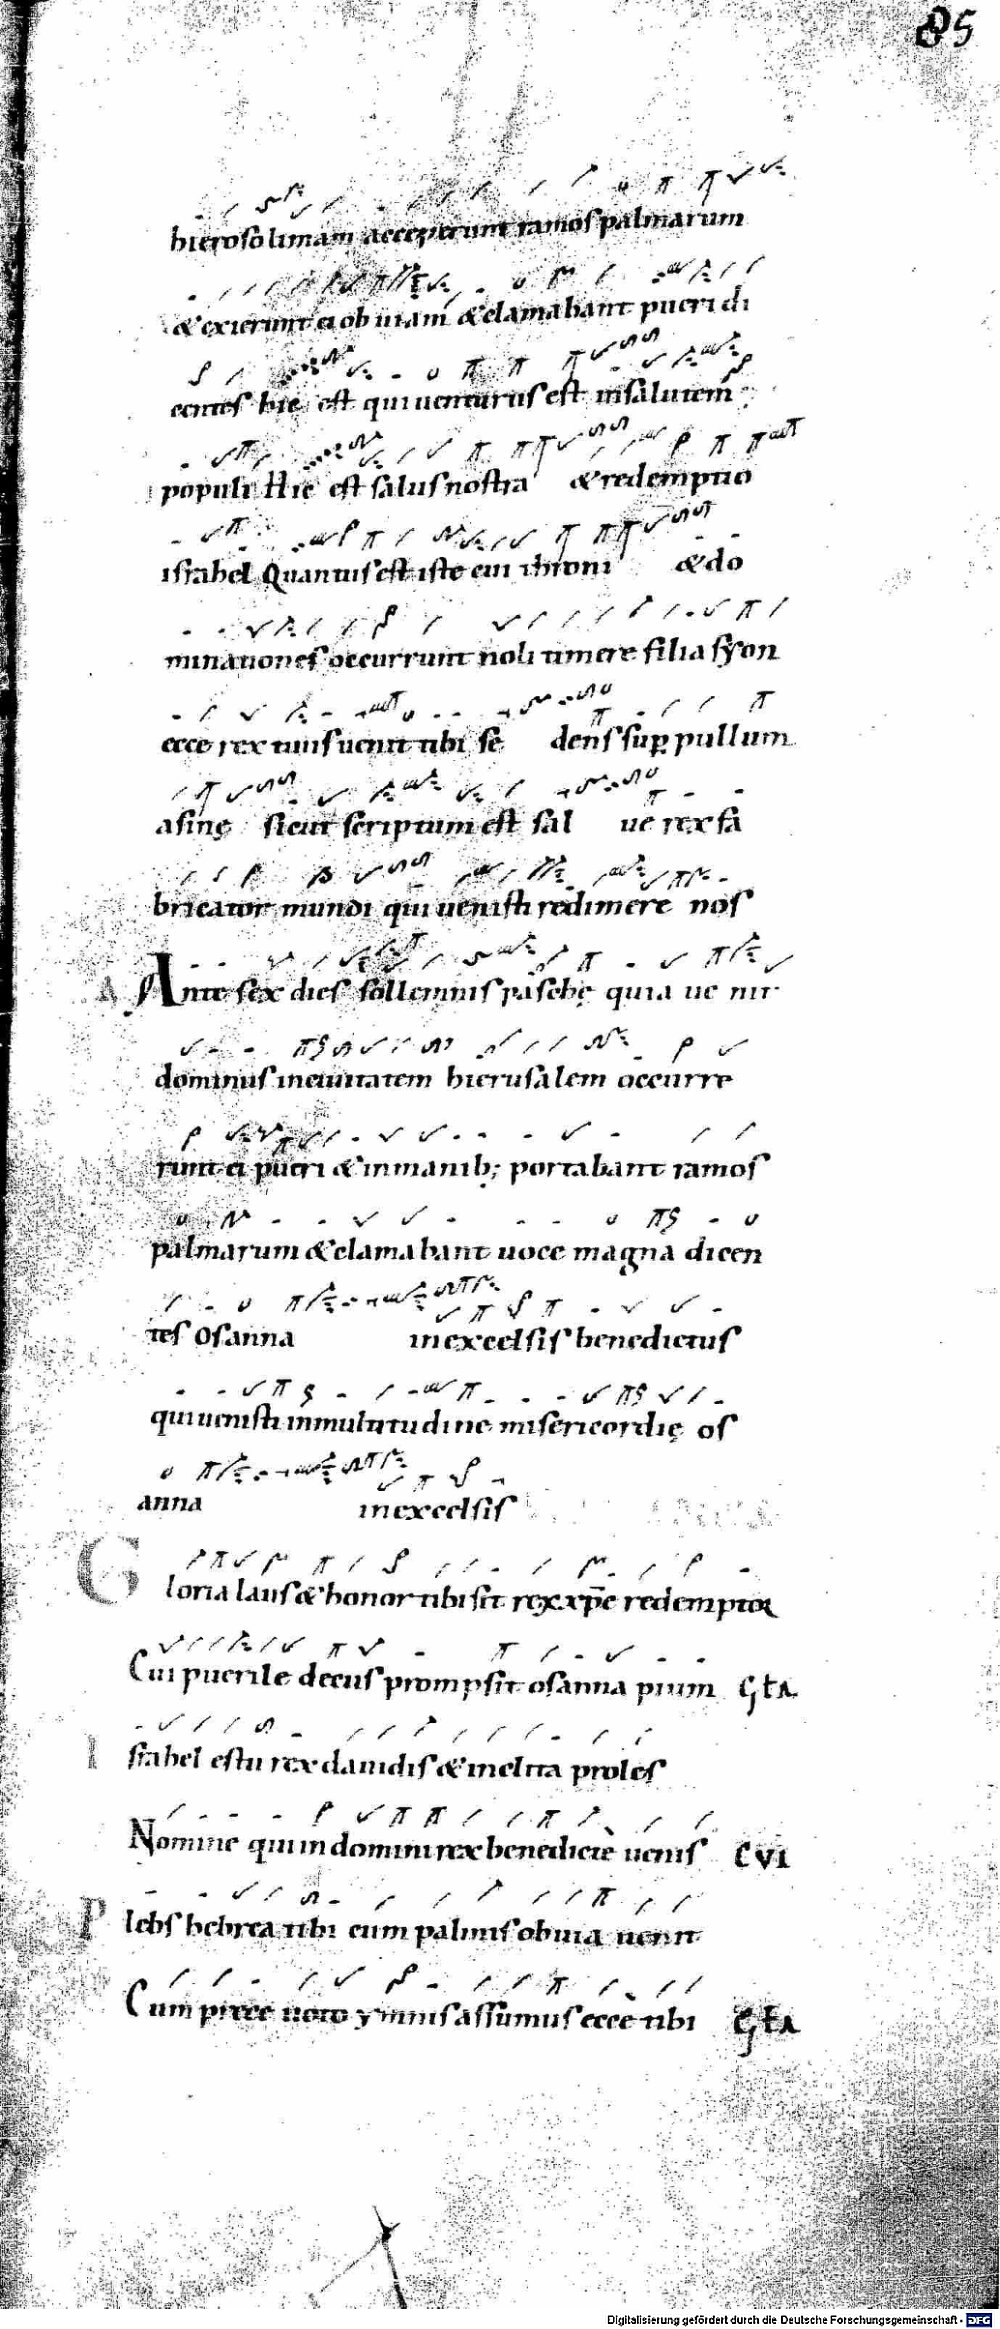 85
hierosolimam acceperunt ramos palmarum
& exierunt ei obuiam & clamabant pueri di
centes hic est qui uenturus est in salutem
populi Hic est salus nostra & redemptio
israhel Quantus est iste cui throni & do
minationes occurrunt noli timere filia syon
ecce rex tuus uenit tibi se dens sup pullum
asinę sicut scriptum est sal ue rex fa
bricator mundi qui uenisti redimere nos
Ante sex dies sollemnis paschę quia ue nit
dominus in ciuitatem hierusalem occurre
runt ei pueri & in manib; portabant ramos
palmarum & clamabant uoce magna dicen
tes osanna in excelsis benedictus
qui uenisti in multitudine misericordię os
anna in excelsis
Gloria laus & honor tibi sit rex xp̄e redemptor
Cui puerile decus prompsit osanna pium Gła
Israhel es tu rex dauidis & inclita proles
Nomine qui in domini rex benedicte uenis CVI
Plebs hebrea tibi cum palmis obuia uenit
Cum prece uoto ymnis assumus ecce tibi Gła
Digitalisierung gefördert durch die Deutsche Forschungsgemeinschaft - DFG